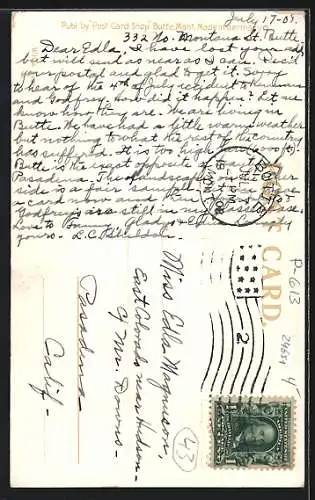 Publ. by "Post Card Shop" Butte, Mont. Made in Germany
July 17-08.
332 No. Montana St. Butte
Dear Edla, I have lost your add.
but will send as near as I can. Rec'd
your postal and glad to get it. Sorry
to hear of the 4th of July accident to
and Godfrey. How did it happen? Let me
know how they are. We are living in
Butte. We have had a little warm weather
but nothing to what the rest of the country
has suffered. It is too high
Butte is the exact opposite
Pasadena. The landscape
side is a fair sample
a card now and
Godfrey's are still in my
Love to Fanny Gladys &
yours - L.C. Sheldon
BUTTE
JUL
18
1908
MONT.
POST CARD.
Miss Edla Magnuson,
East Colorado near Hudson-
c/ Mrs. Downs-
Pasadena-
Calif-
P-613
43
2
1